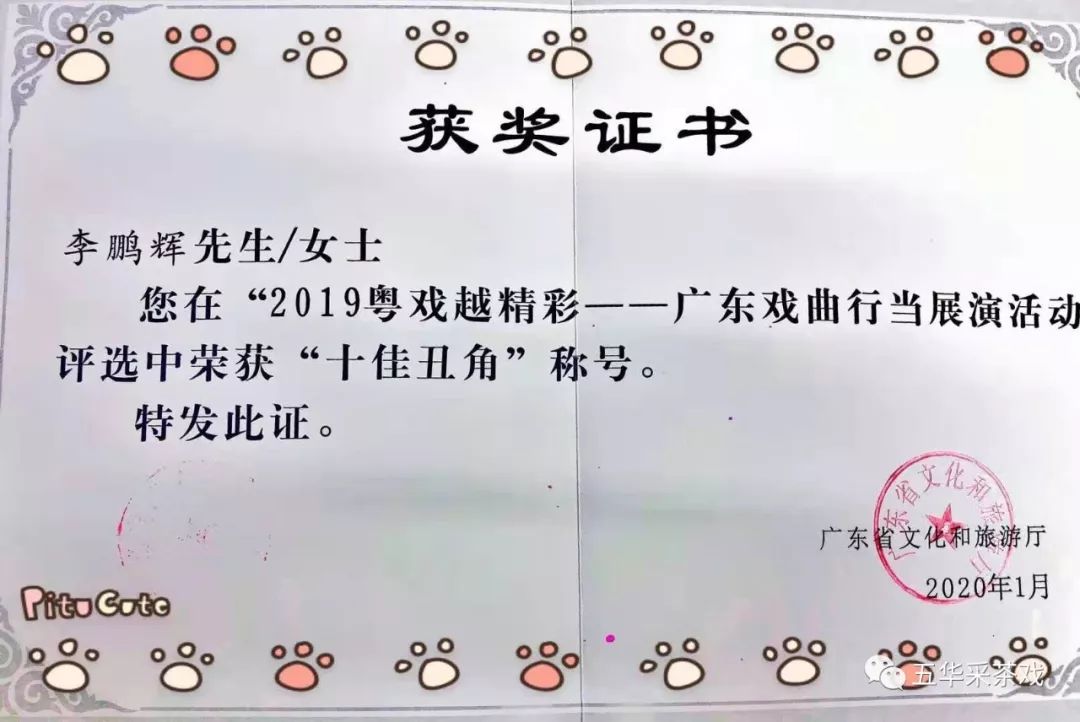 获奖证书
李鹏辉先生/女士
您在“2019粤戏越精彩——广东戏曲行当展演活动
评选中荣获“十佳丑角”称号。
特发此证。
广东省文化和旅游厅
广东省文化和旅游厅
2020年1月
Pitu Cute
五华采茶戏